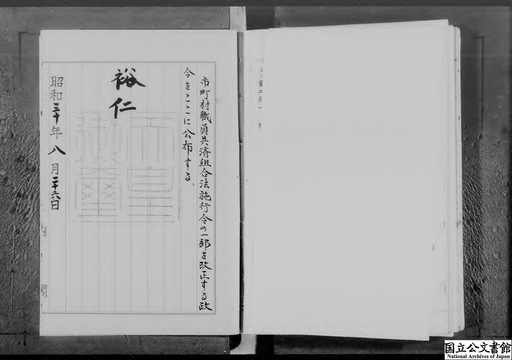 市町村職員共済組合法施行令の一部を改正する政
令をここに公布する。
裕仁
昭和三十年八月二十六日
国立公文書館
National Archives of Japan